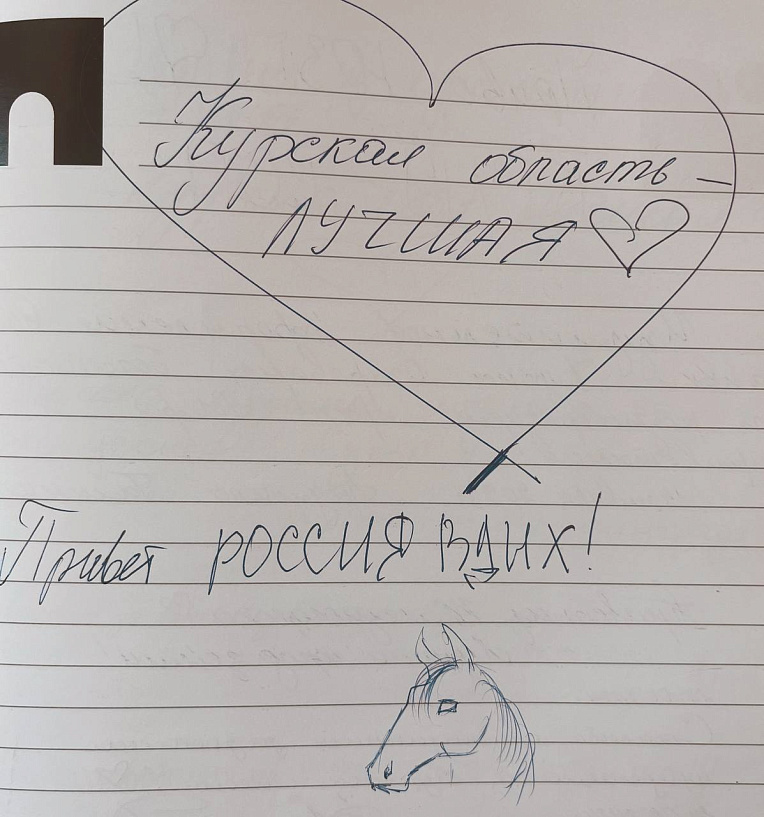 Курская область –
ЛУЧШАЯ
Привет РОССИЯ ВДНХ!